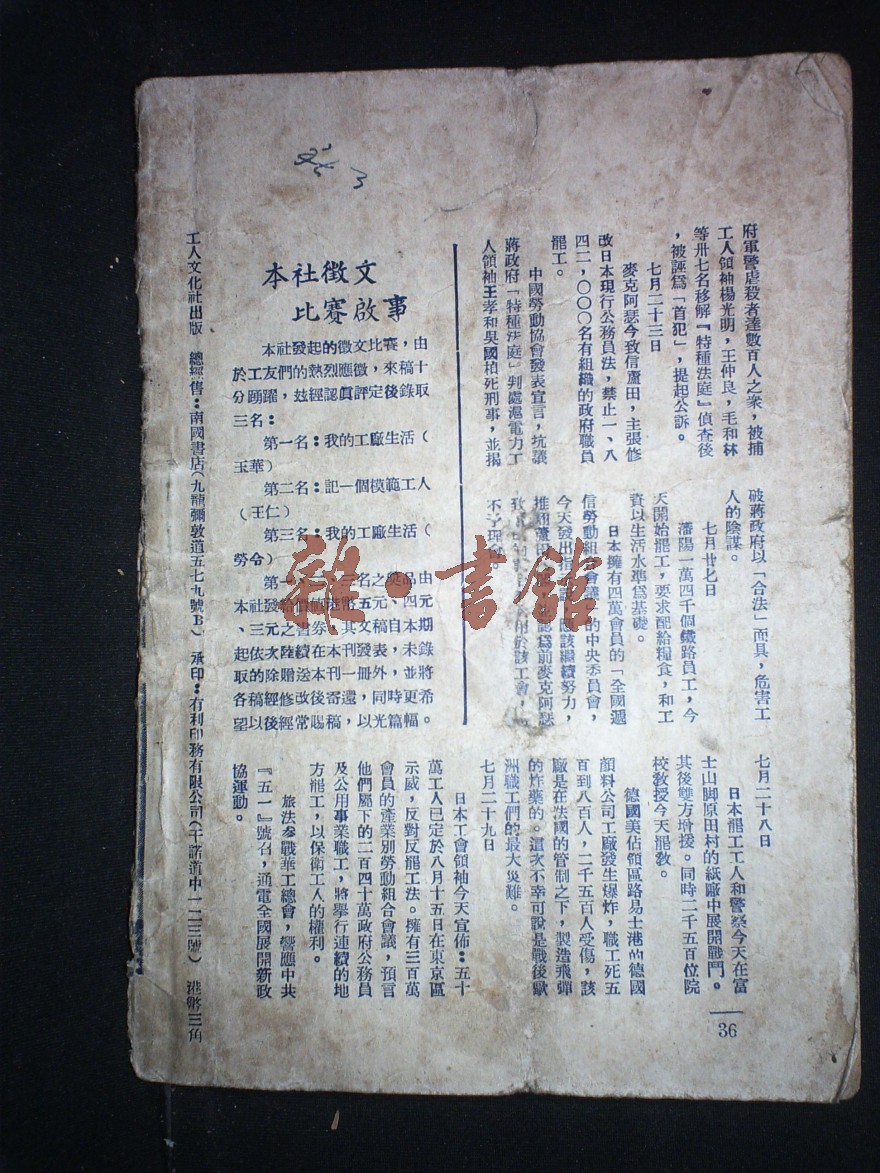 府軍警虐殺者達數百人之衆，被捕
工人領袖楊光明，王仲良，毛和林
等卅七名移解『特種法庭』偵查後
，被誣爲「首犯」，提起公訴。
七月二十三日
麥克阿瑟今致信蘆田，主張修
改日本現行公務員法，禁止一、八
四二，〇〇〇名有組織的政府職員
罷工。
中國勞動協會發表宣言，坑議
蔣政府「特種法庭」判處滬電力工
人領袖王孝和吳國楨死刑事，並揭
破蔣政府以「合法」面具，危害工
人的陰謀。
七月廿七日
瀋陽一萬四千個鐵路員工，今
天開始罷工，要求配給糧食，和工
資以生活水準爲基礎。
日本擁有四萬會員的「全國遞
信勞動組合會議」的中央委員會，
今天發出指 該繼續努力，
推翻蘆田 認爲前麥克阿瑟
致 用於該工會，
不予理 。
七月二十八日
日本罷工工人和警察今天在富
士山脚原田村的紙廠中展開戰鬥。
其後雙方增援。同時二千五百位院
校敎授今天罷敎。
德國美佔領區路易士港的德國
顏料公司工廠發生爆炸，職工死五
百到八百人，二千五百人受傷，該
廠是在法國的管制之下，製造飛彈
的炸藥的。這次不幸可說是戰後歐
洲職工們的最大災難。
七月二十九日
日本工會領袖今天宣佈：五十
萬工人已定於八月十五日在東京區
示威，反對反罷工法。擁有三百萬
會員的產業別勞動組合會議，預言
他們屬下的二百四十萬政府公務員
及公用事業職工，將舉行連續的地
方罷工，以保衛工人的權利。
旅法參戰華工總會，響應中共
『五一』號召，通電全國展開新政
協運動。
36
本社徵文
比賽啟事
本社發起的徵文比賽，由
於工友們的熱烈應徵，來稿十
分踴躍，茲經認眞評定後錄取
三名：
第一名：我的工廠生活（
玉華）
第二名：記一個模範工人
（王仁）
第三名：我的工廠生活（
勞令）
第一 三名之獎品由
本社發給價值港幣五元、四元
、三元之書券，其文稿自本期
起依次陸續在本刊發表，未錄
取的稿除贈送本刊一冊外，並將
各稿經修改後寄還，同時更希
望以後經常賜稿，以光篇幅。
工人文化社出版　總經售：南國書店（九龍彌敦道五七九號B）　承印：有利印務有限公司（干諾道中一二三號）　港幣三角
雜·書館